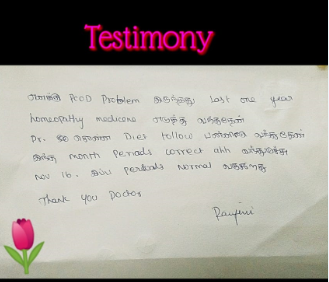 Testimony
எனக்கு PCOD Problem இருந்தது last one year
homeopathy medicine எடுத்து வந்தேன்
Dr. சொன்ன Diet follow பண்ணி வந்தேன்
இந்த month Periods correct ahh வந்தது
Nov 16. இப்ப periods normal வந்தது
Thank you Doctor
Ranjini